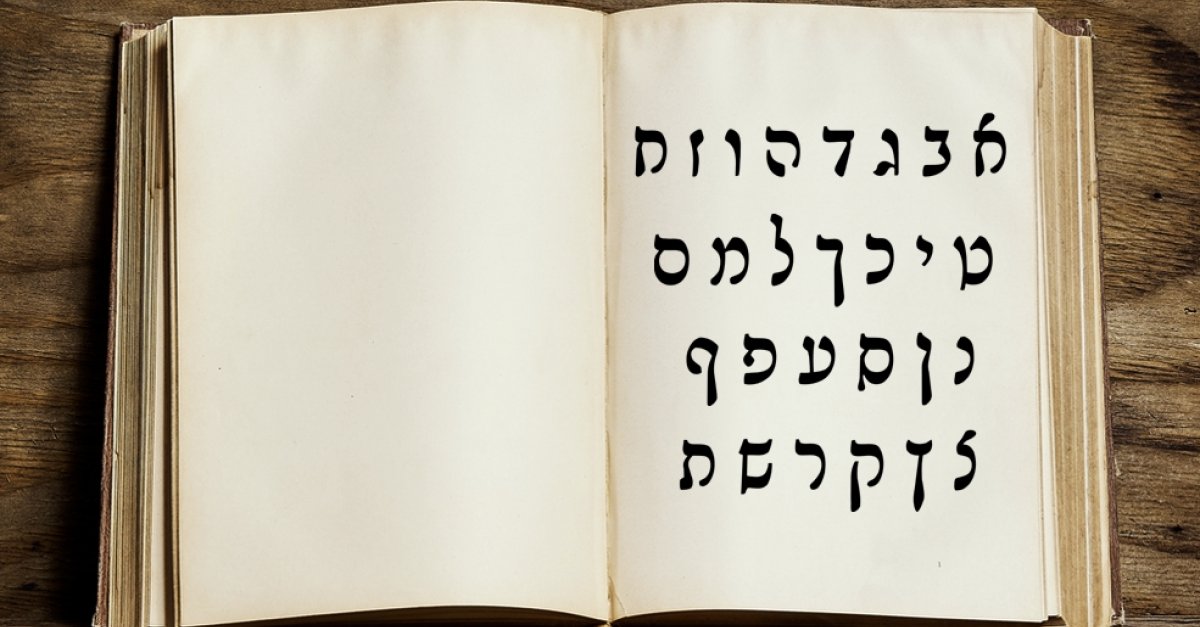 א ב ג ד ה ו ז ח
ט י כ ך ל מ ם
נ ן ס ע פ ף
צ ץ ק ר ש ת